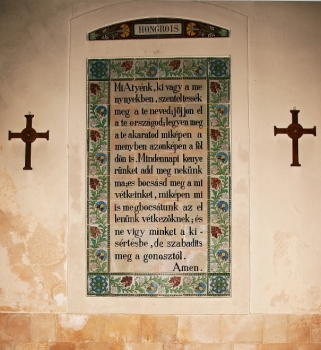 HONGROIS
Mi Atyénk, ki vagy a me
nynyekben, szenteltessék
meg a te neved; jöjjon el
a te országod; legyen meg
a te akaratod miképen a
menyben azonképen a föl
dön is. Mindennapi kenye
rünket add meg nekünk
ma; es bocsásd meg a mi
vétkeinket, miképen mi
is megbocsátunk az el
lenünk vétkezöknek; és
ne vigy minket a ki-
sértésbe, de szabadits
meg a gonosztól.
Amen.